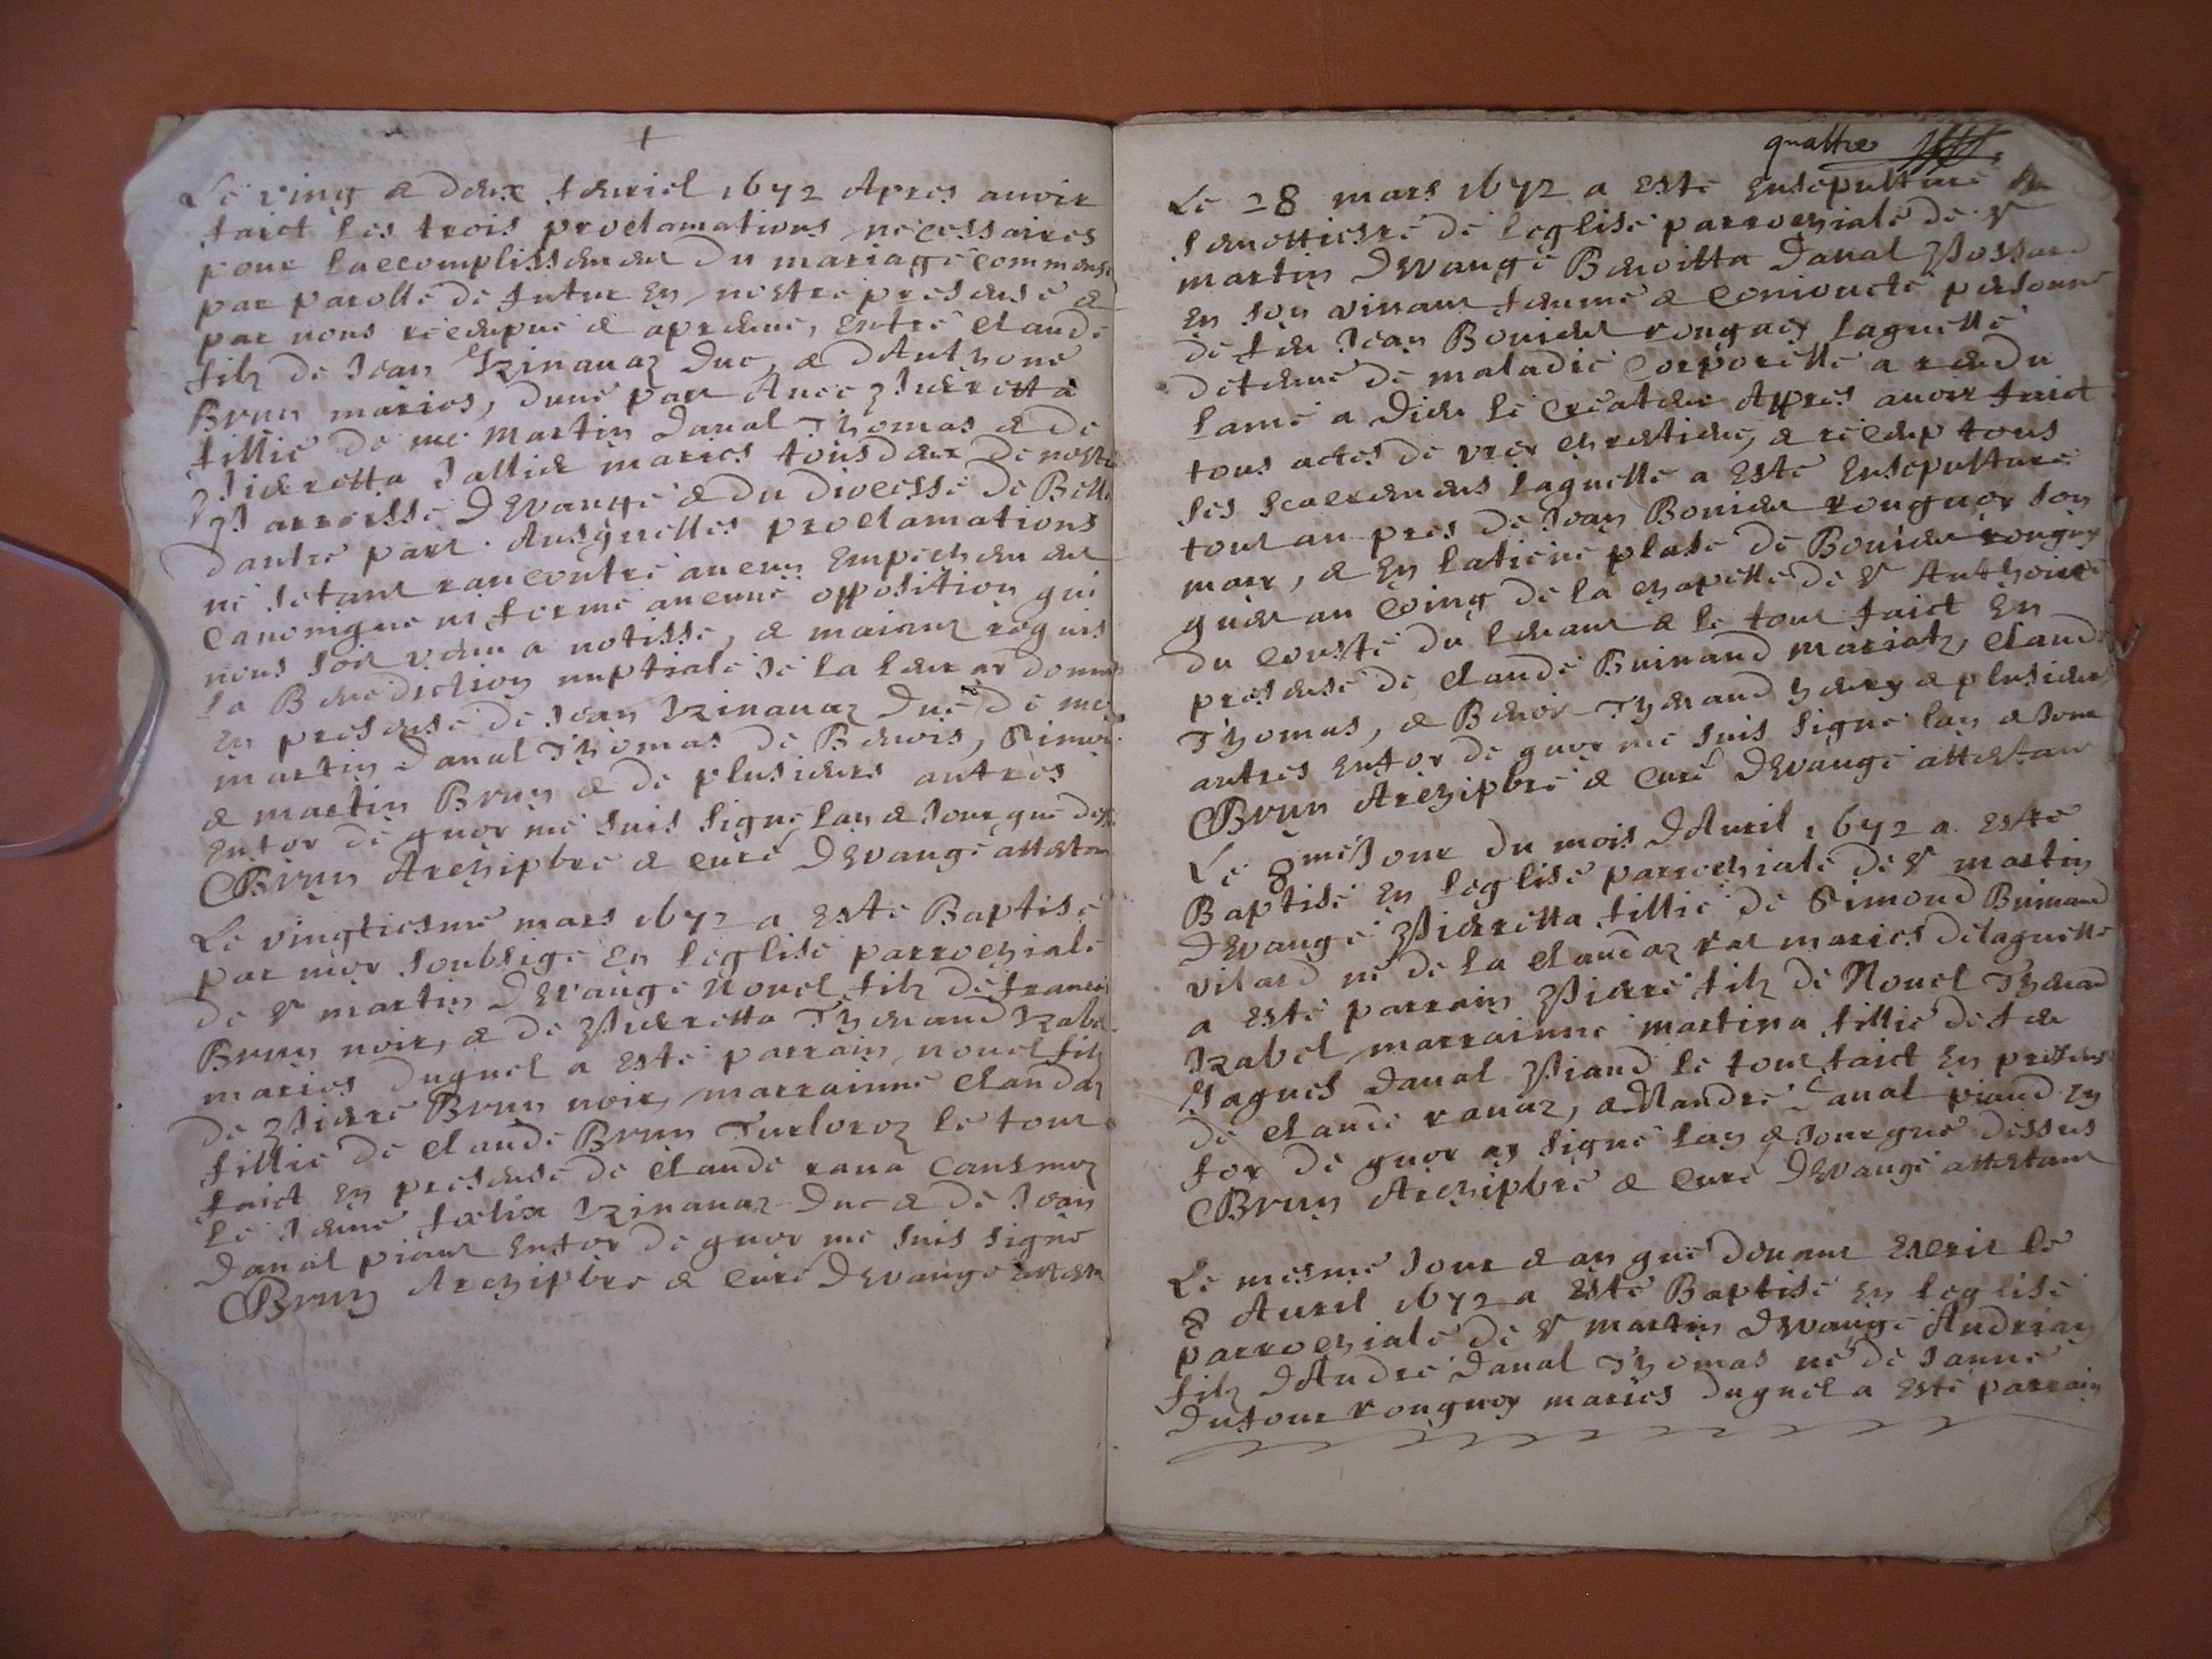 Le ving & deux feuriel 1672 Apres auoir
faict les trois proclamations necessaires
pour laccomplissement du mariage commense
par parolle de futur en nostre presense &
par nous receupue & apreuue, entre Claude
filz de Jean Izinauaz Duc, & dAnthone
Brun maries, dune part Auec Pierretta
fillie de me Martin Daual Thomas & de
Pierretta Jallier maries tous deux de nostre
Parroisse DEvange & du diocesse de Belle
dautre part. Ausquelles proclamations
ne setant rancontre aucun empechement
canonique ni forme aucune opposition qui
nous soit venu a notisse, & maiant requis
la Benediction nuptiale je la leur ay donne
en presense de Jean Izinauaz Duc de me
martin Daual Thomas de Benois, Simon
& martin Brun & de plusieurs autres
en foy de quoy me suis signe lan & Jour que dess
Brun Archipbre & Cure DEvange attestant
Le vingtiesme mars 1672 a Este Baptise
par moy soubsige En leglise parrochiale
de St martin DEvange Nouel filz de francois
Brun noir, & de Pierretta Theuraud Izabel
maries duquel a este parrain nouel filz
de Pierre Brun noir, marrainne Claudaz
fillie de Claude Brun Turloroz le tout
faict en presense de Claude raua
le Jeune foelix Izinauaz Duc & de Jean
Daual piaut En foy de quoy me suis signe
Brun Archipbre & Cure DEvange attestant
quattre
Le 28 mars 1672 a Este Ensepulture
de leglise parrochiale de St
martin DEvange Benoitta Daual Possard
En son viuant femme & Conioncte personne
de feu Jean Bouuier rouguoy laquelle
detenue de maladie Corporelle a rendu
lame a Dieu le Createur Appres auoir faict
tous actes de vray chrestiens, & receup tous
les sacremens laquelle a Este Ensepulture
tout au pres de Jean Bouuier rouguoy son
mary, & En latiene plase de Bouuier rouguoy
guier au Coing de la chapelle de St Anthoine
du Couste du leuant & le tout faict En
presense de, Claude Buinand mariatz, Claude
Thomas, & Benoit Theuraud heury & plusieurs
autres En foy de quoy me suis signe lan & Jour
Brun Archipbre & Cure DEvange attestant
Le 8me Jour du mois dAuril 1672 a Este
Baptise En leglise parrochiale de St martin
DEvange Pierretta fillie de Simond Buinand
vilard ne de la Claudaz rat maries de laquelle
a este parrain Pierre filz de Nouel Theuraud
Izabel, marrainne martina fillie de feu
Jaques Daual Piand le tout faict En presense
de Claude rauaz, & dandre Daual piaud En
foy de quoy ay signe lan & Jour que dessus
Brun Archipbre & Cure DEvange attestant
Le mesme Jour & an que deuant Escrit le
8 Auril 1672 a Este Baptise En leglise
parrochiale de St martin DEvange Andrian
filz dAndre Daual Thomas ne de Janne
Dufour rouguoy maries duquel a este parrain